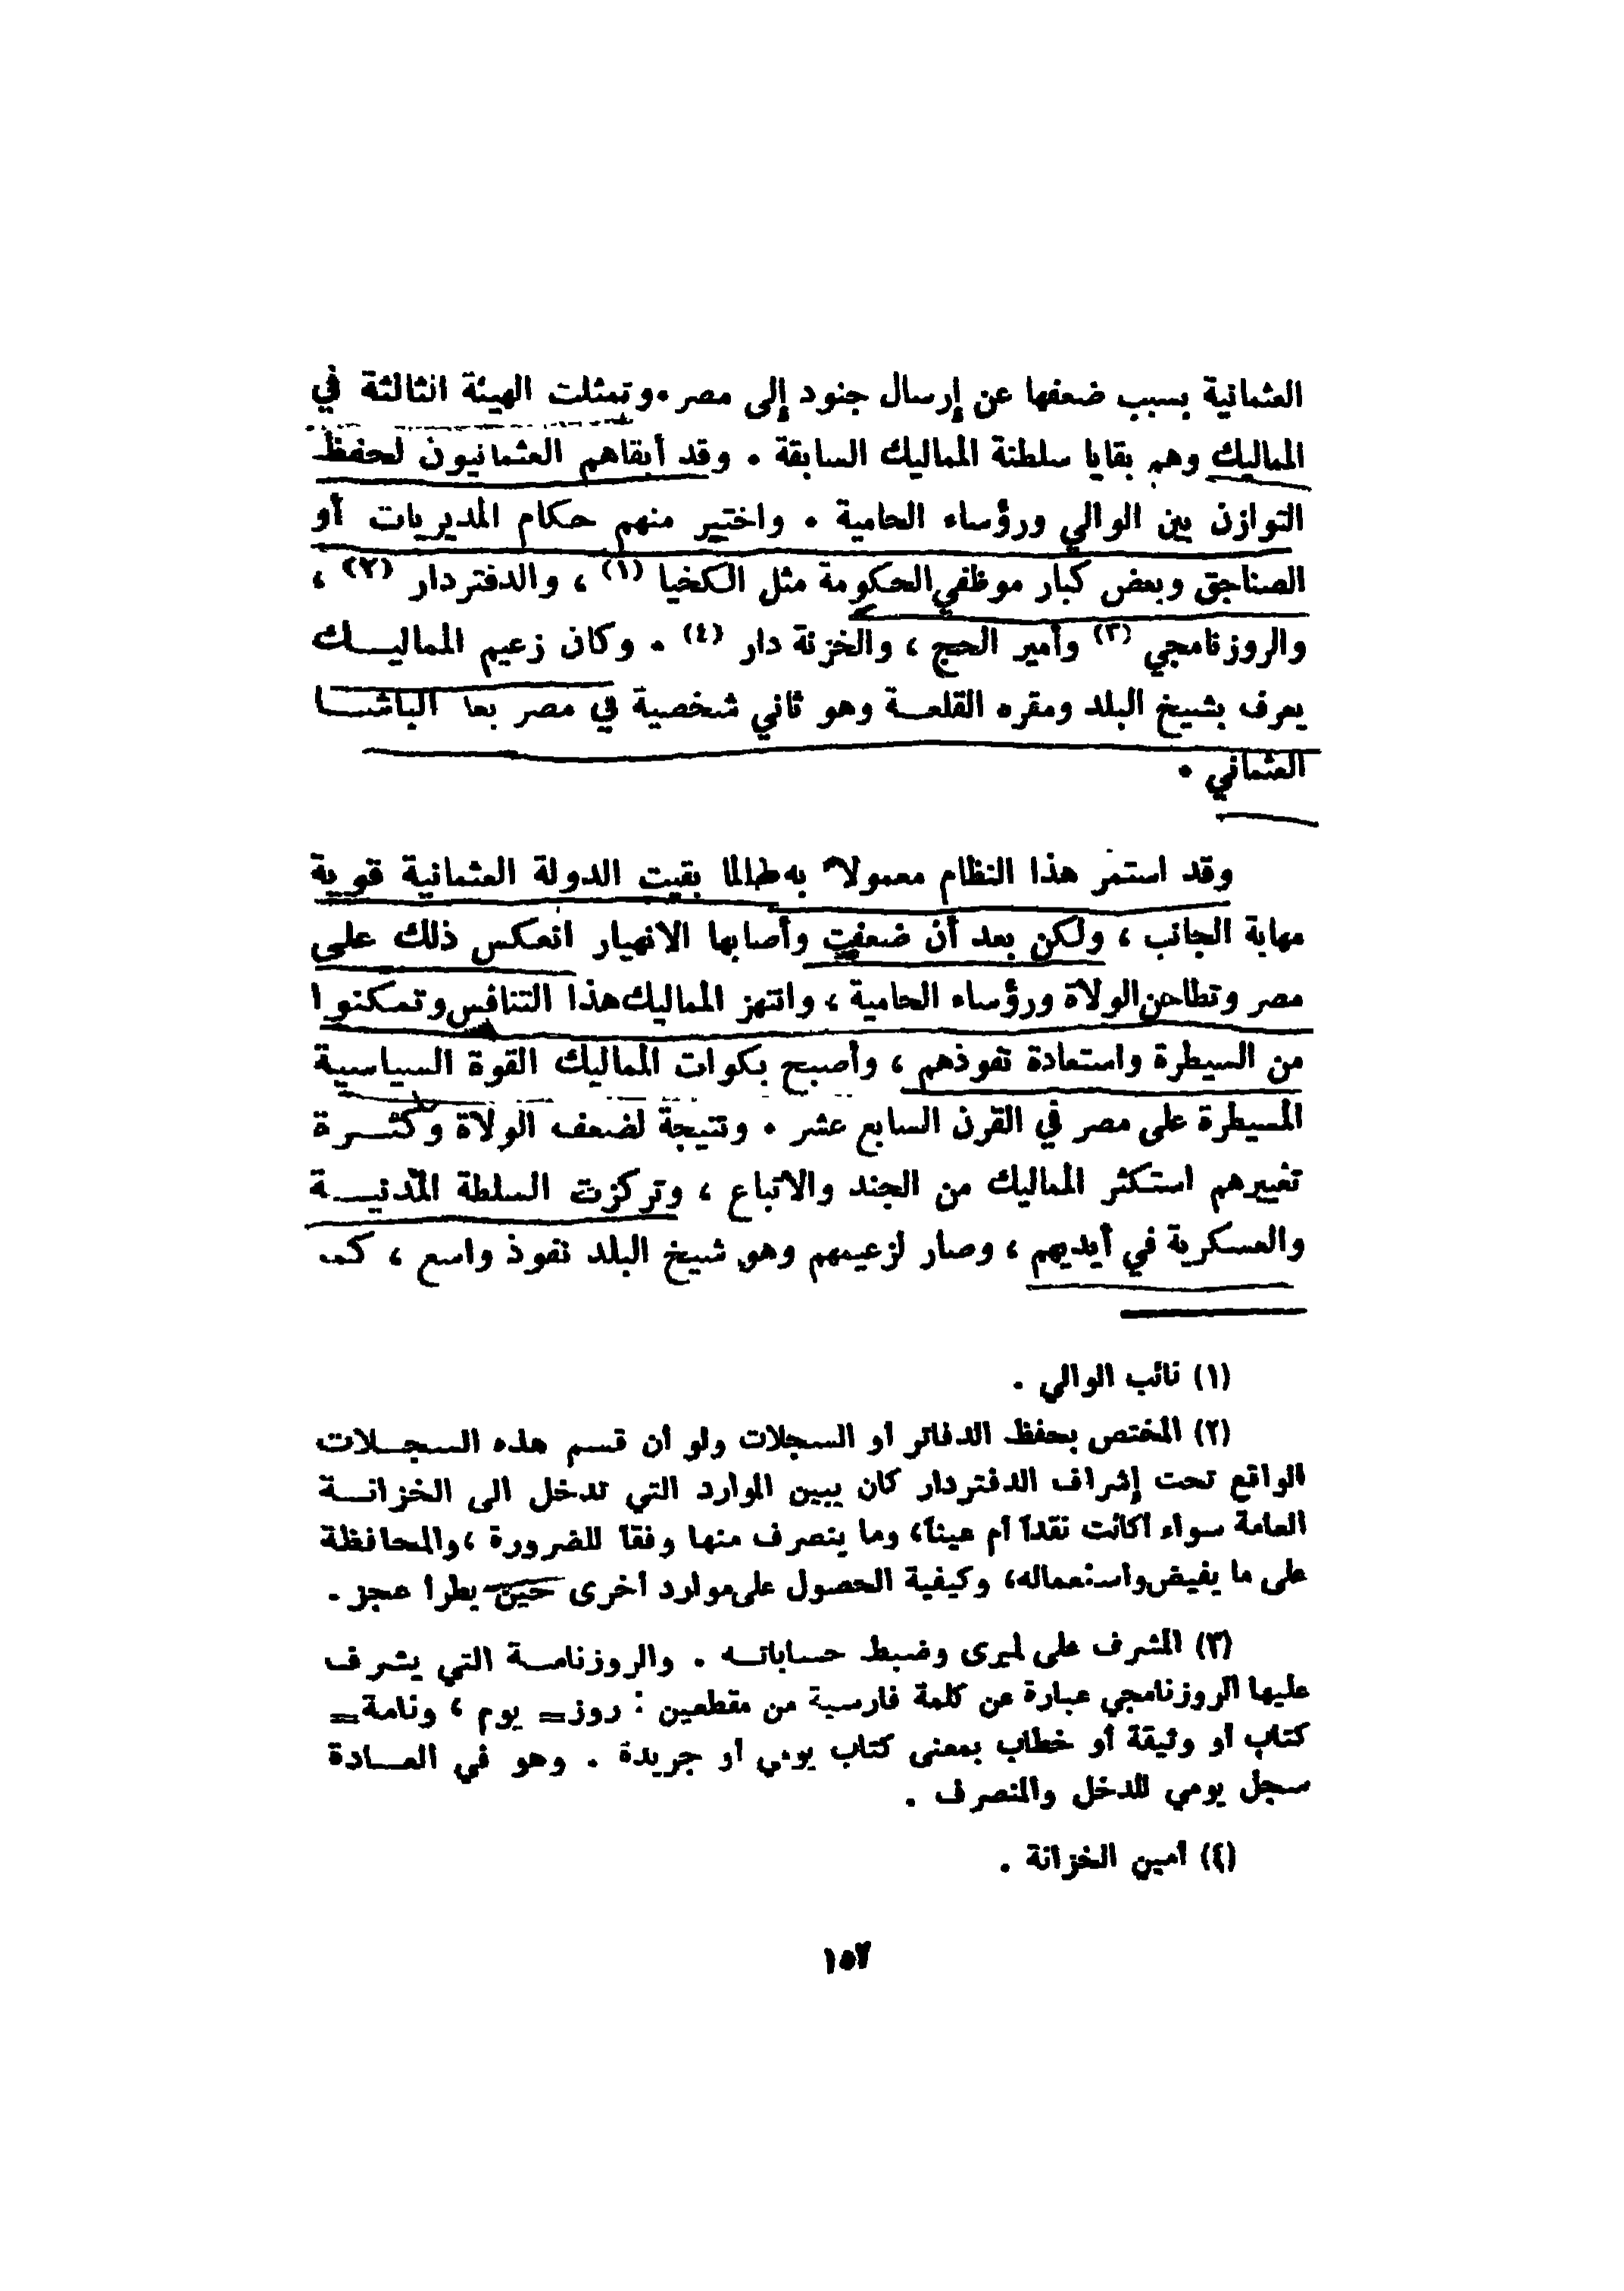 العثمانية بسبب ضعفها عن إرسال جنود إلى مصر . وتمثلت الهيئة الثالثة في
المماليك وهم بقايا سلطنة المماليك السابقة . وقد أبقاهم العثمانيون لحفظ
التوازن بين الوالي ورؤساء الحامية . واختير منهم حكام المديريات أو
الصناجق وبعض كبار موظفي الحكومة مثل الكخيا (١) ، والدفتردار (٢) ،
والروزنامجي (٣) وأمير الحج ، والخزنة دار (٤) . وكان زعيم المماليك
يعرف بشيخ البلد ومقره القلعة وهو ثاني شخصية في مصر بعد الباشا
العثماني .
وقد استمر هذا النظام معمولا به طالما بقيت الدولة العثمانية قوية
مهابة الجانب ، ولكن بعد أن ضعفت وأصابها الانهيار انعكس ذلك على
مصر وتطاحن الولاة ورؤساء الحامية ، وانتهز المماليك هذا التنافس وتمكنوا
من السيطرة واستعادة نفوذهم ، وأصبح بكوات المماليك القوة السياسية
المسيطرة على مصر في القرن السابع عشر . ونتيجة لضعف الولاة وكثرة
تغييرهم استكثر المماليك من الجند والاتباع ، وتركزت السلطة المدنية
والعسكرية في أيديهم ، وصار لزعيمهم وهو شيخ البلد نفوذ واسع ، كما
(١) نائب الوالي .
(٢) المختص بحفظ الدفاتر أو السجلات ولو أن قسم هذه السجلات
الواقع تحت إشراف الدفتردار كان يبين الموارد التي تدخل الى الخزانة
العامة سواء أكانت نقداً أم عيناً، وما ينصرف منها وفقاً للضرورة ، والمحافظة
على ما يفيض واستعماله، وكيفية الحصول على موارد أخرى حين يطرأ عجز .
(٣) المشرف على لميرى وضبط حساباته . والروزنامة التي يشرف
عليها الروزنامجي عبارة عن كلمة فارسية من مقطعين : روز= يوم ، ونامة=
كتاب أو وثيقة أو خطاب بمعنى كتاب يومي أو جريدة . وهو في العادة
سجل يومي للدخل والمنصرف .
(٤) أمين الخزانة .
١٥٢